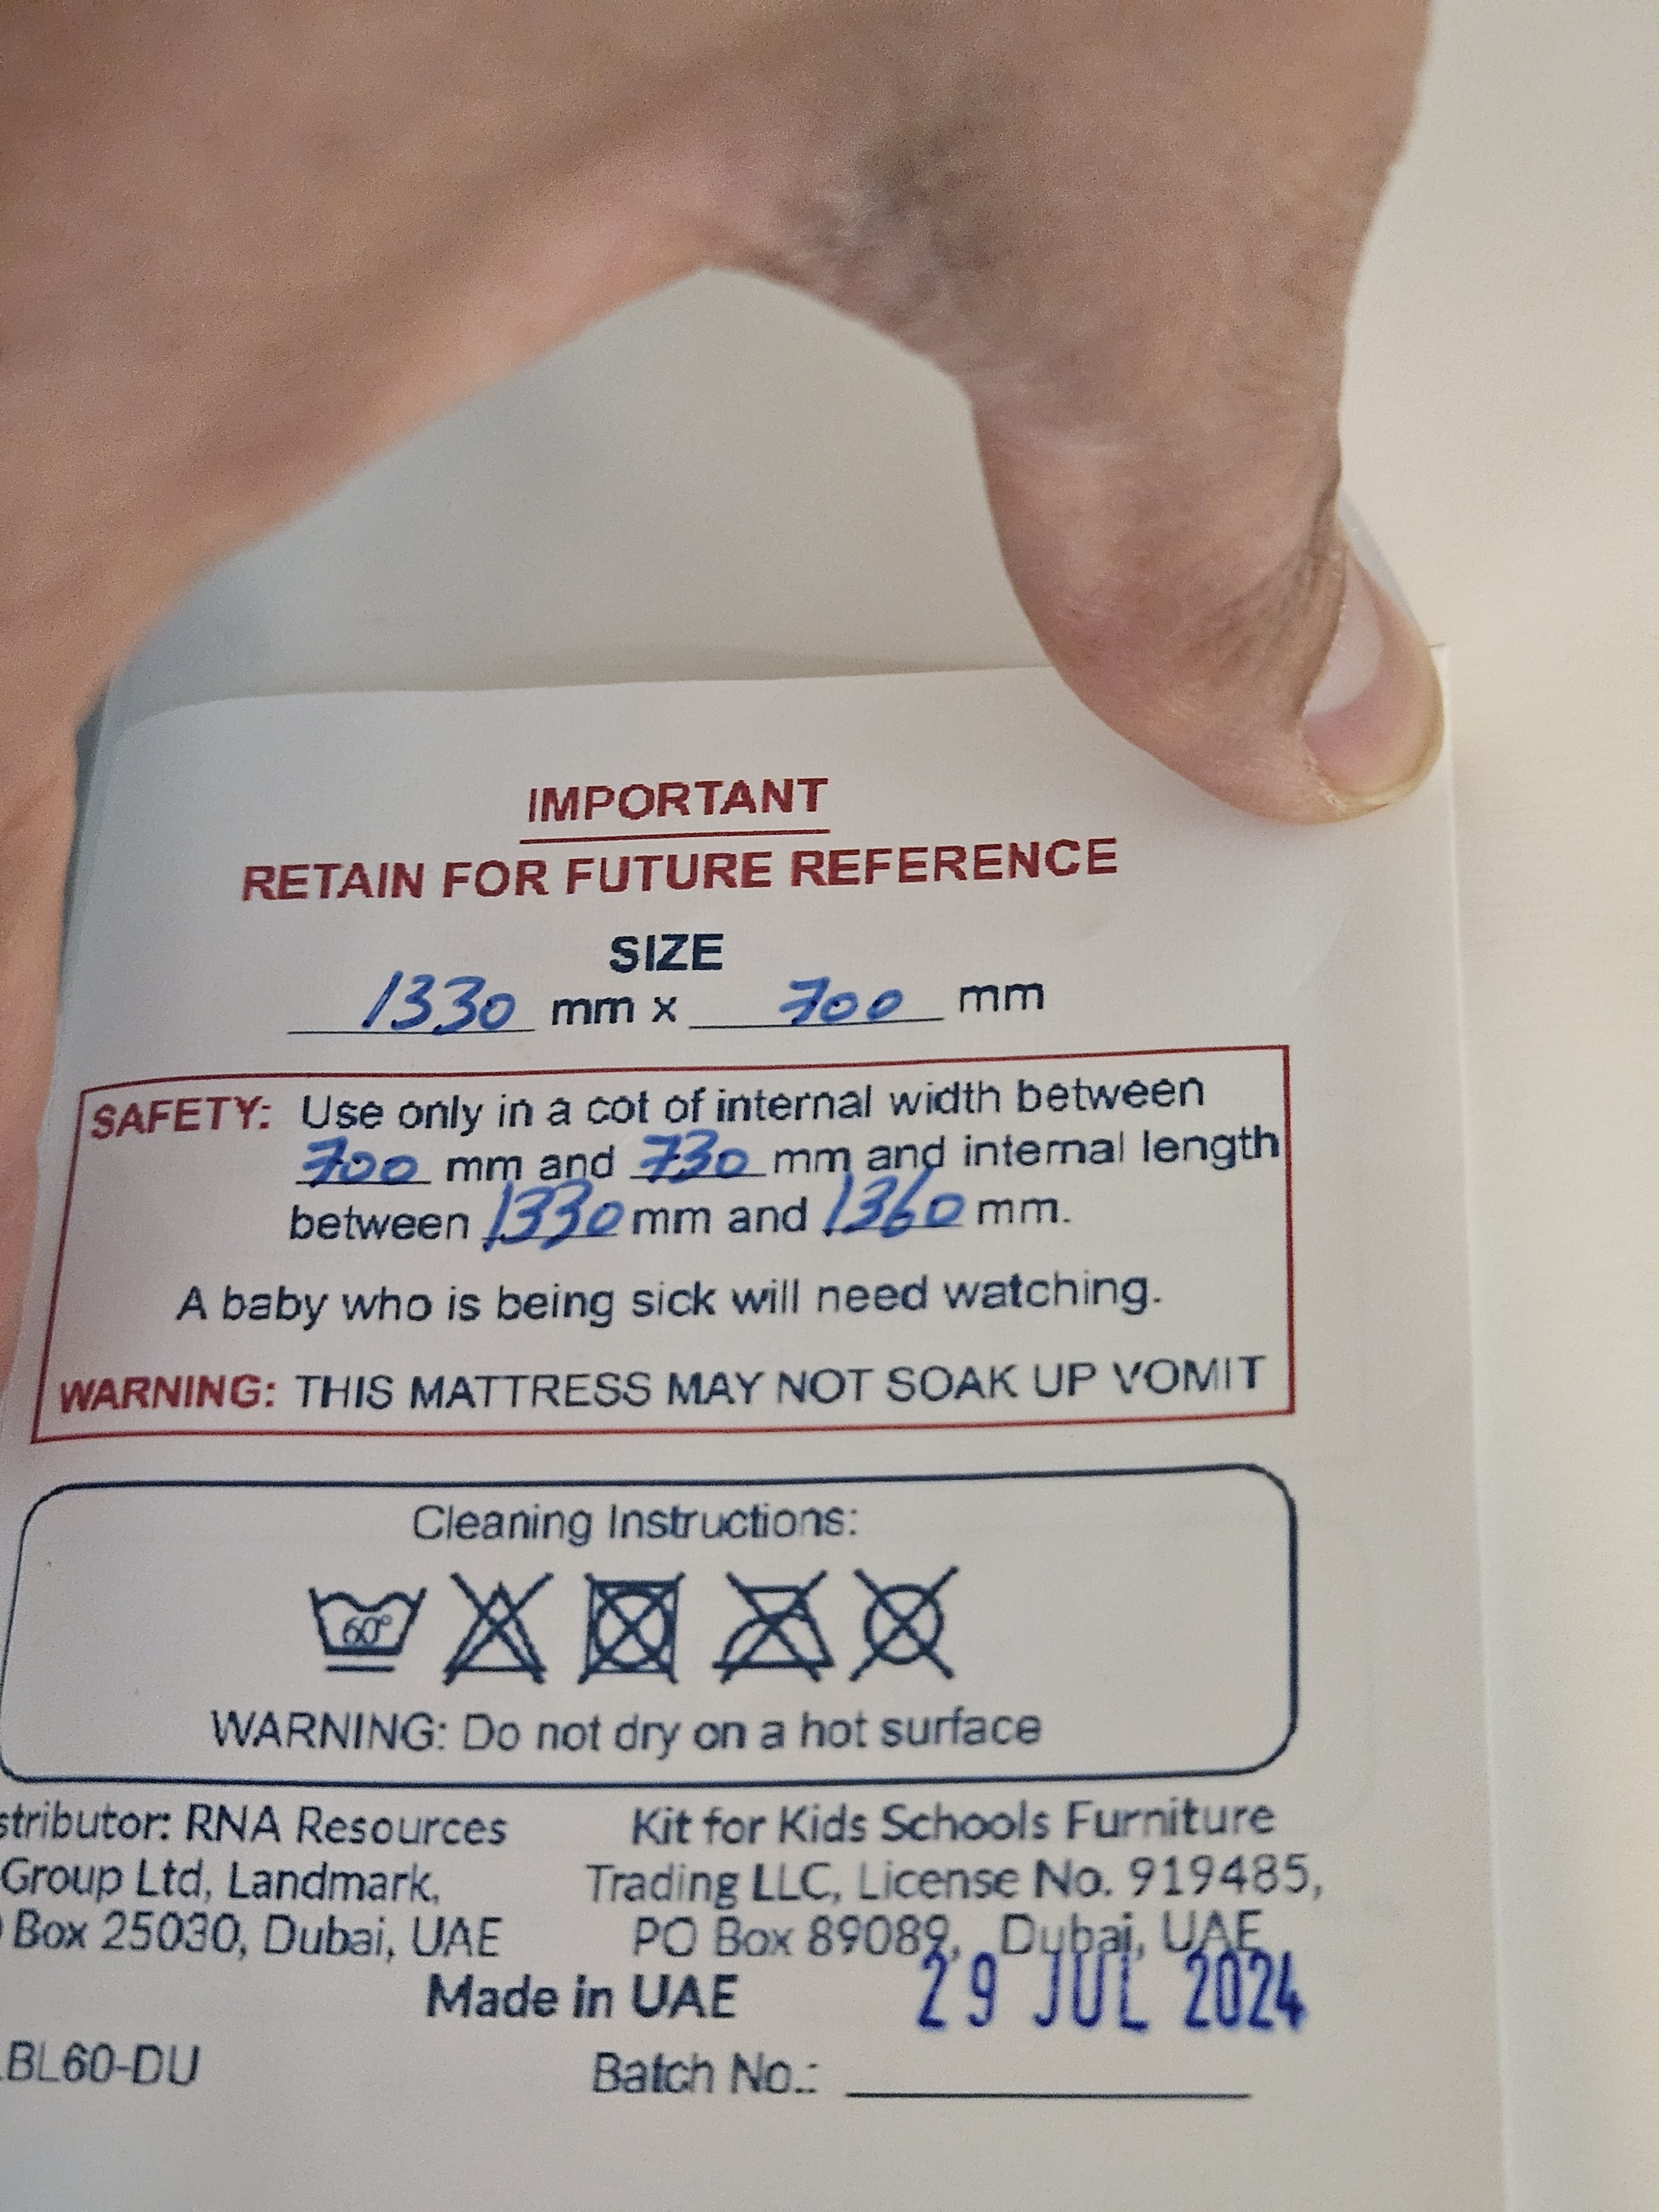 IMPORTANT
RETAIN FOR FUTURE REFERENCE
SIZE
1330 mm x 700 mm
SAFETY: Use only in a cot of internal width between
700 mm and 730 mm and internal length
between 1330 mm and 1360 mm.
A baby who is being sick will need watching.
WARNING: THIS MATTRESS MAY NOT SOAK UP VOMIT
Cleaning Instructions:
60°
WARNING: Do not dry on a hot surface
stributor: RNA Resources
Group Ltd, Landmark,
Box 25030, Dubai, UAE
Kit for Kids Schools Furniture
Trading LLC, License No. 919485,
PO Box 89089, Dubai, UAE
Made in UAE
29 JUL 2024
BL60-DU
Batch No.: